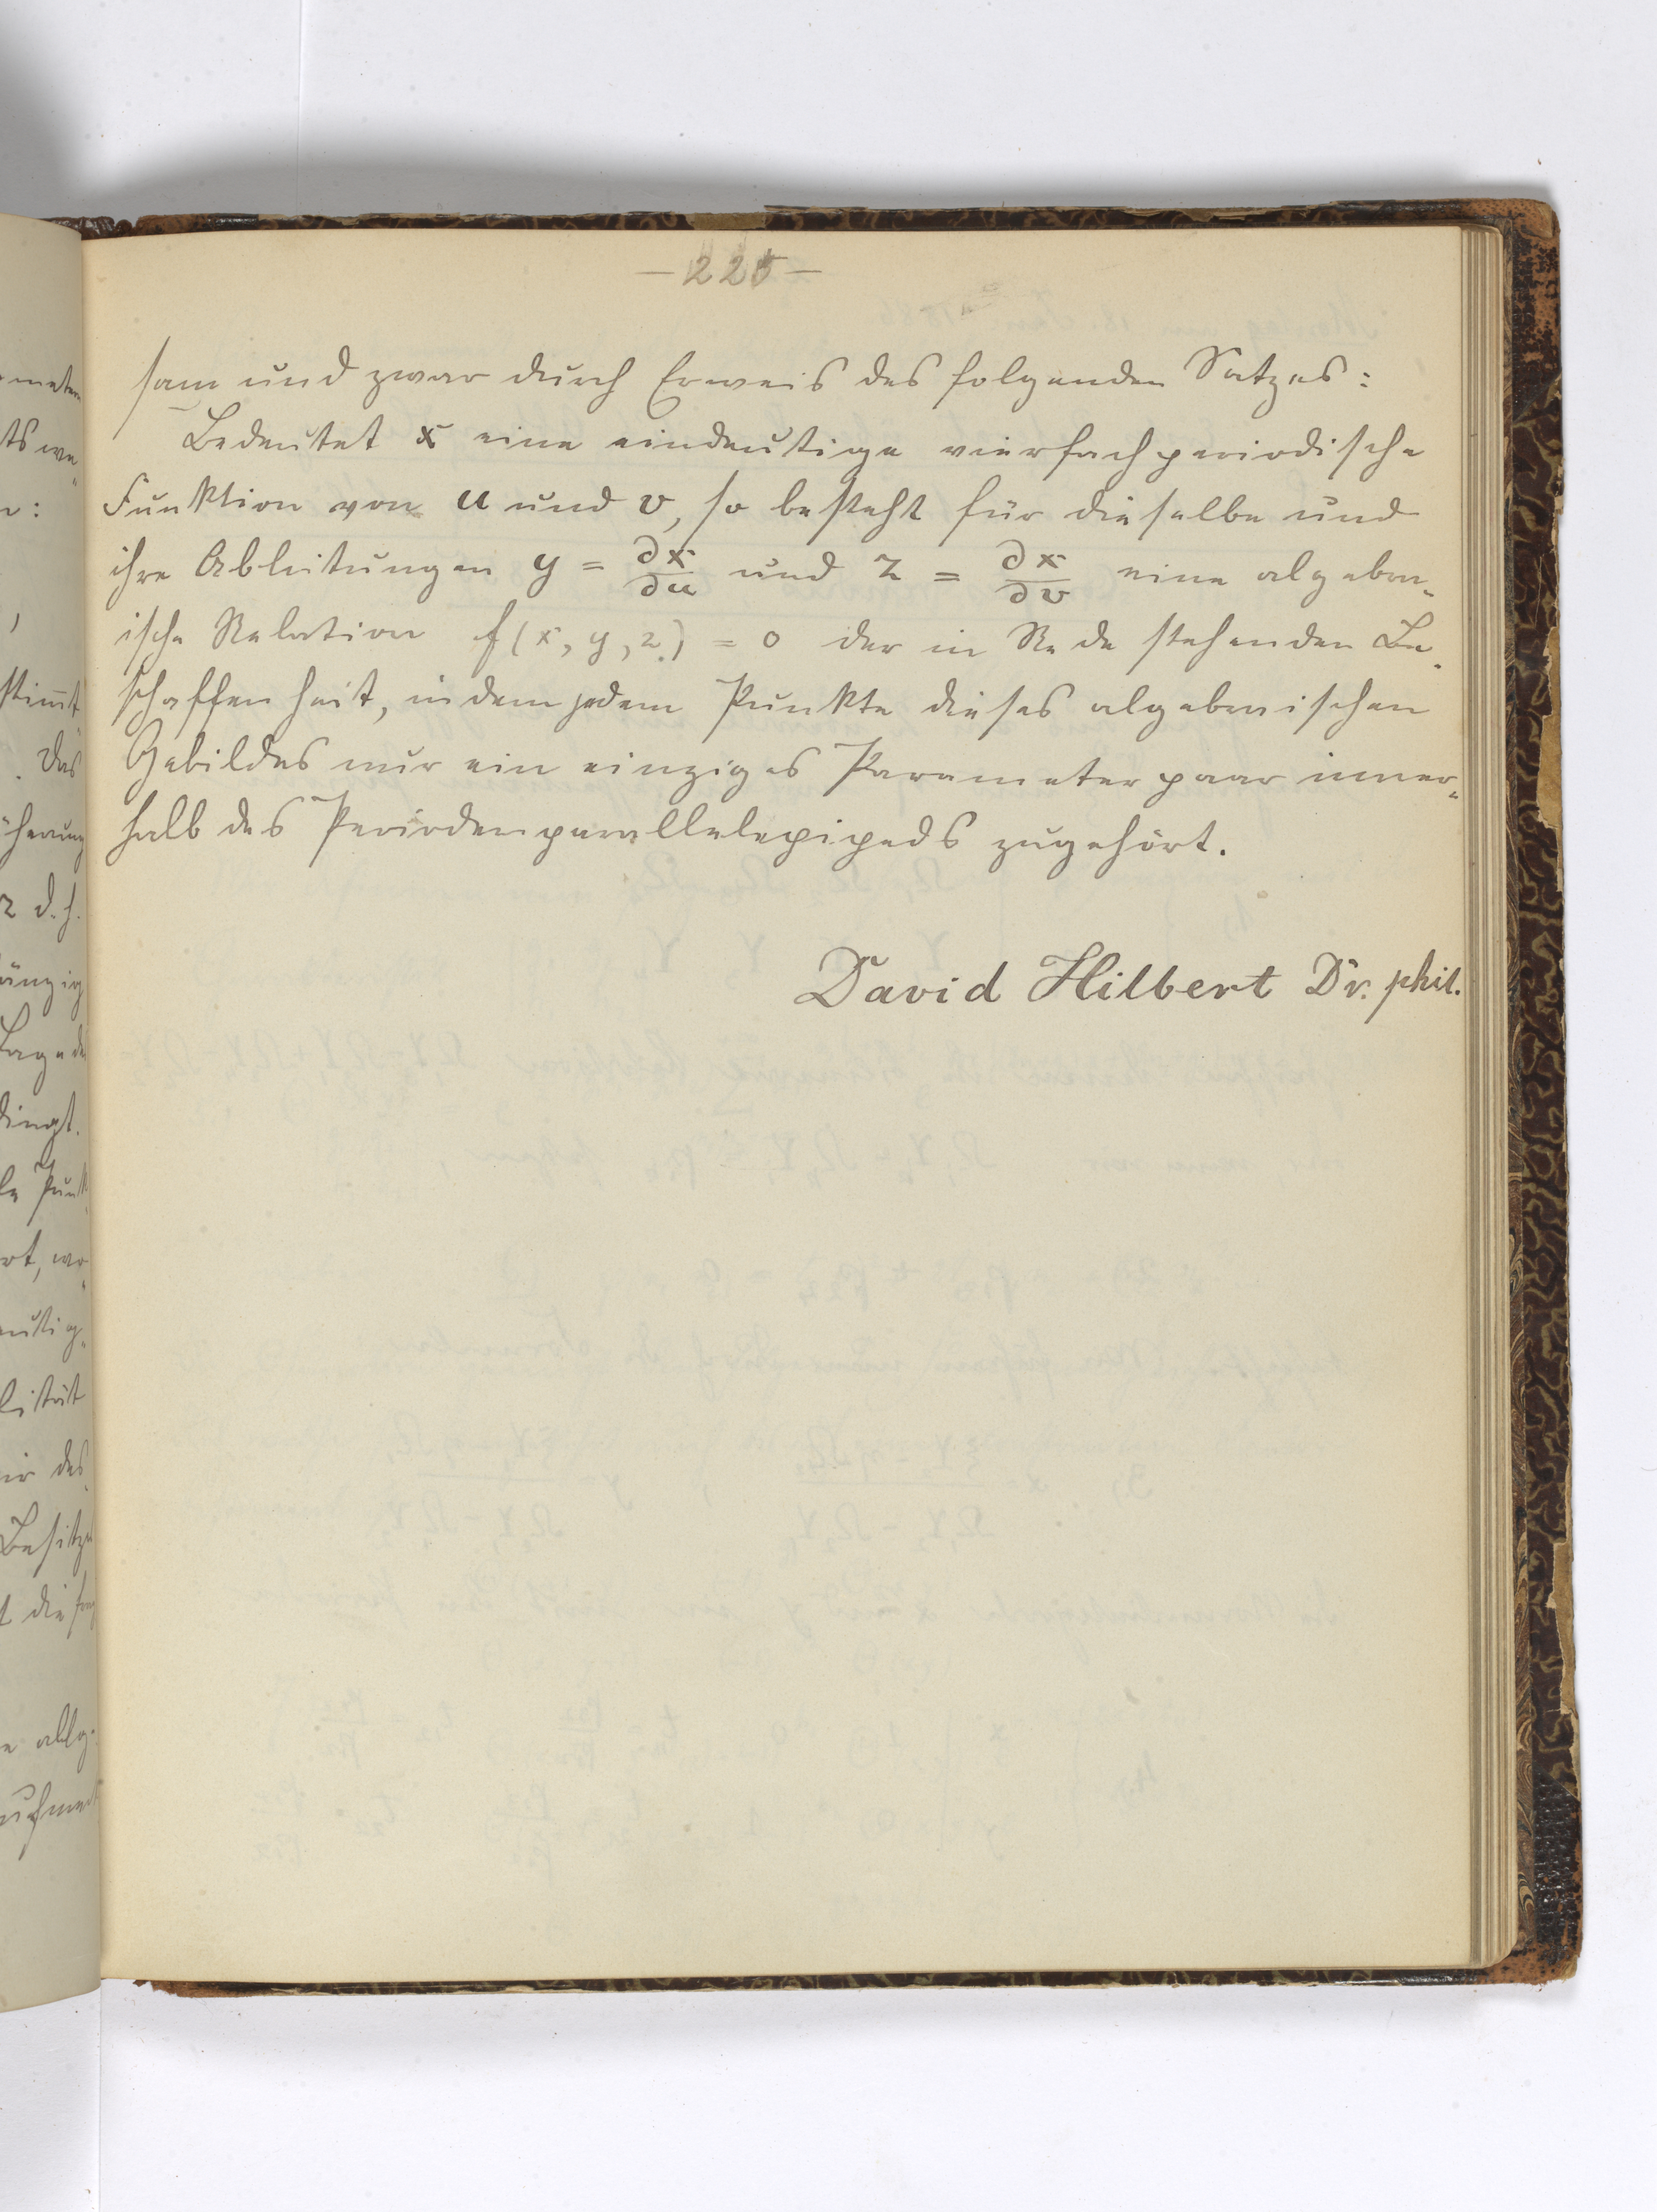 — 225 —
sam und zwar durch Erweis des folgenden Satzes:
Bedeutet x eine eindeutige vierfach periodische
Funktion von u und v, so besteht für dieselbe und
ihre Ableitungen y = ∂x/∂u und z = ∂x/∂v eine algebra-
ische Relation f(x, y, z) = 0 der in Rede stehenden Be-
schaffenheit, indem jedem Punkte dieses algebraischen
Gebildes nur ein einziges Parameterpaar inner-
halb des Periodenparallelepipeds zugehört.
David Hilbert Dr. phil.